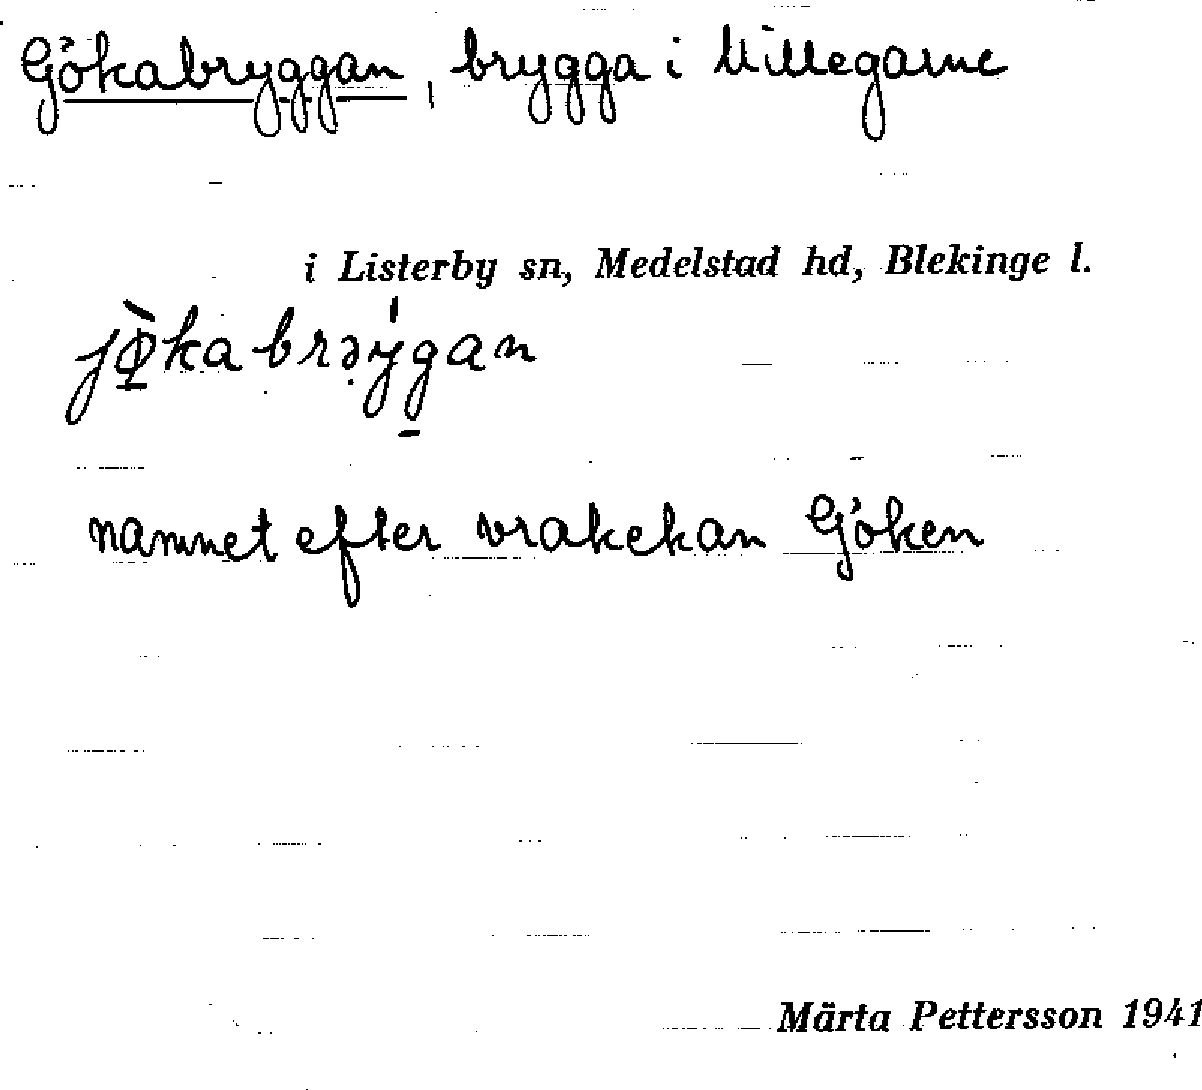 Gökabryggan, brygga i Millegarne
i Listerby sn, Medelstad hd, Blekinge l.
jø̀kabrəýgan
namnet efter vrakekan Göken
Märta Pettersson 1941